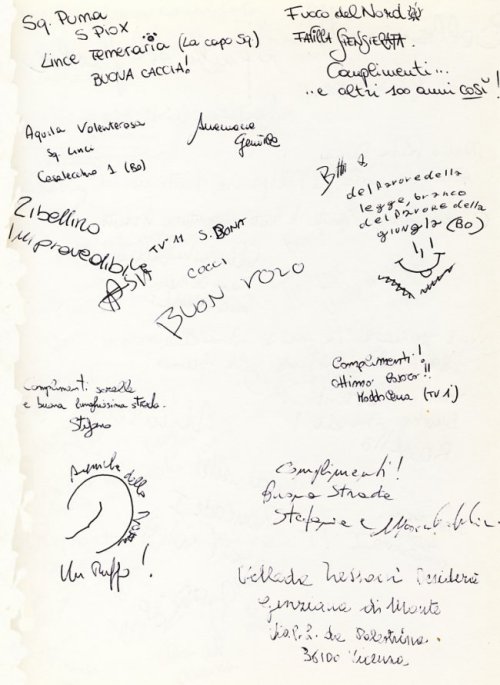 Sq. Puma
S Piox
Lince Temeraria (La capo Sq.)
BUONA CACCIA!
Fuoco del Nord
Complimenti...
...e altri 100 anni così!
Aquila Volenterosa
Sq. Linci
Casalecchio 1 (Bo)
Annamaria
Zibellino
Imprevedibile
ASIA
TV 11 S. BONA
COCCI
BUON VOLO
del Pavore della
legge, branco
del Pavore della
giungla (BO)
Complimenti!
ottimo lavoro!!
Maddalena (TV 1)
Complimenti sorelle
e buona lunghissima strada.
Stefano
della
Un Ruffo!
Complimenti!
Buona Strada
Stefania e
Genziana di Monte
Via P. L. da Palestrina
36100 Vicenza